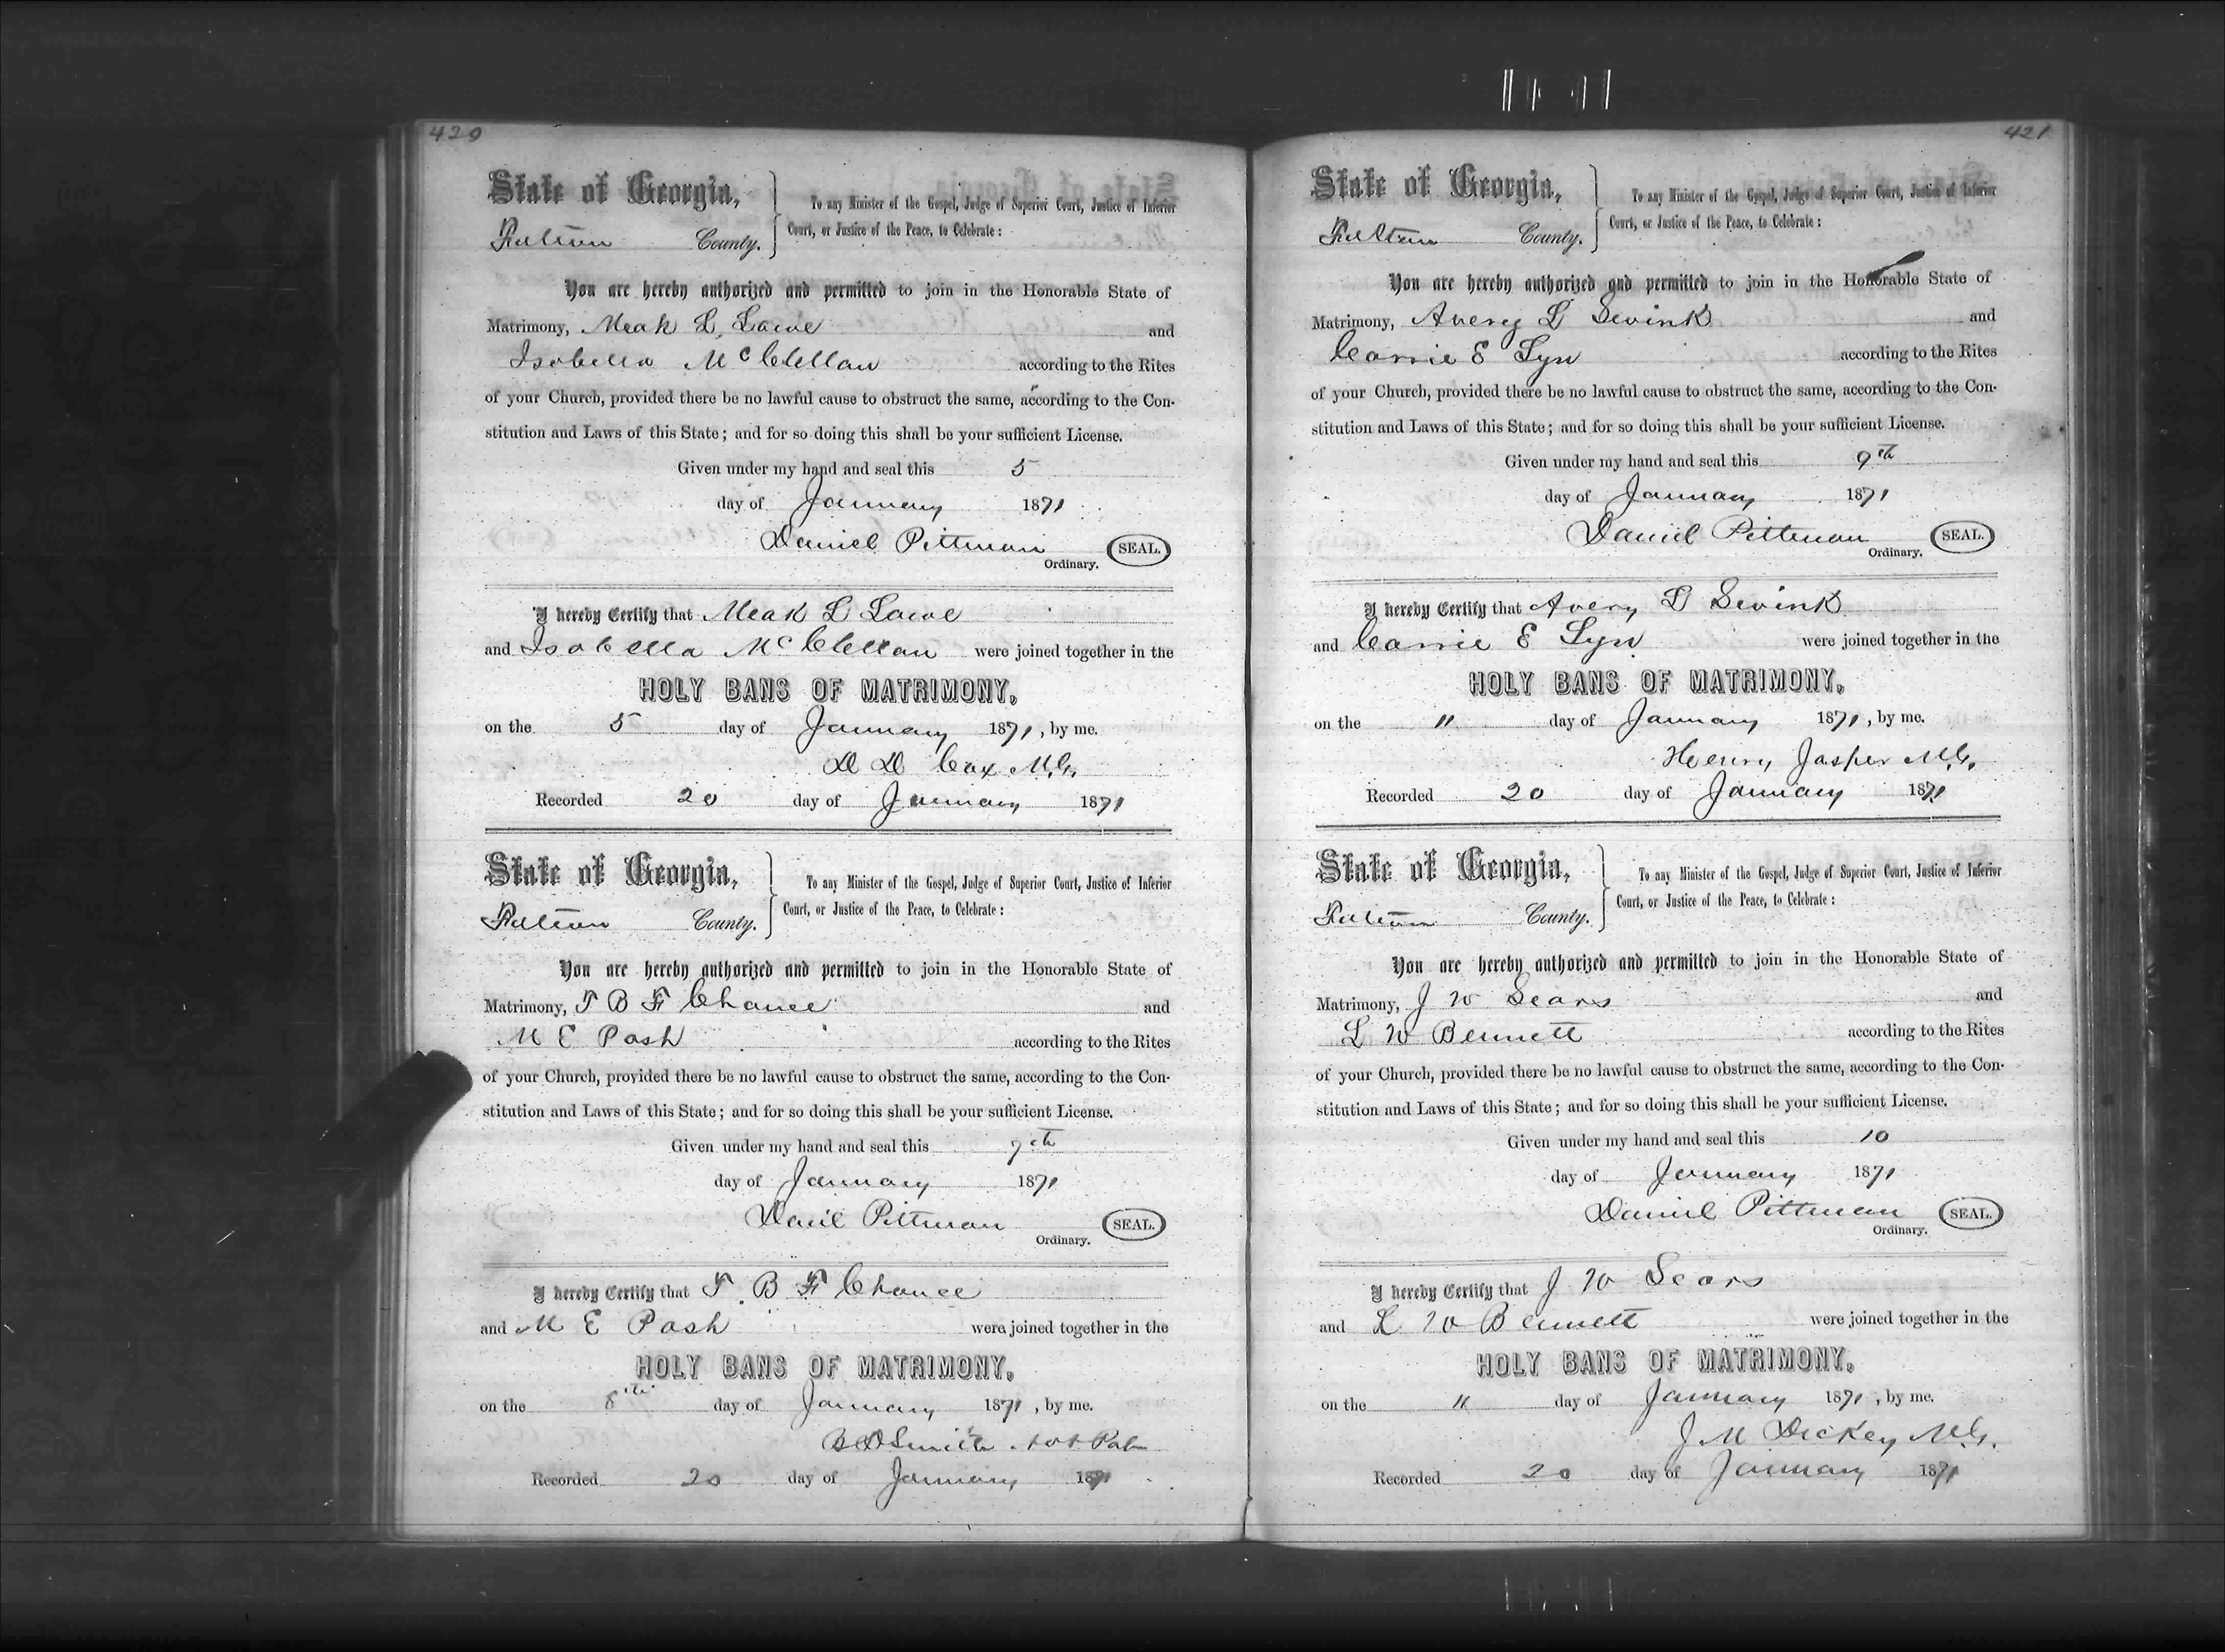 420
State of Georgia,
Fulton County.
To any Minister of the Gospel, Judge of Superior Court, Justice of Inferior
Court, or Justice of the Peace, to Celebrate :
You are hereby authorized and permitted to join in the Honorable State of
Matrimony, Meak L Lawe and
Isabella McClellan according to the Rites
of your Church, provided there be no lawful cause to obstruct the same, according to the Con-
stitution and Laws of this State; and for so doing this shall be your sufficient License.
Given under my hand and seal this 5
day of January 1871
Daniel Pittman SEAL.
Ordinary.
I hereby Certify that Meak L Lawe
and Isabella McClellan were joined together in the
HOLY BANS OF MATRIMONY,
on the 5 day of January 1871, by me.
D D Cox M.G.
Recorded 20 day of January 1871
State of Georgia,
Fulton County.
To any Minister of the Gospel, Judge of Superior Court, Justice of Inferior
Court, or Justice of the Peace, to Celebrate :
You are hereby authorized and permitted to join in the Honorable State of
Matrimony, T B F Chance and
M E Pash according to the Rites
of your Church, provided there be no lawful cause to obstruct the same, according to the Con-
stitution and Laws of this State; and for so doing this shall be your sufficient License.
Given under my hand and seal this 7th
day of January 1871
Daniel Pittman SEAL.
Ordinary.
I hereby Certify that T. B F Chance
and M E Pash were joined together in the
HOLY BANS OF MATRIMONY,
on the 8th day of January 1871, by me.
B D Smith Not Pub
Recorded 20 day of January 1871
421
State of Georgia,
Fulton County.
To any Minister of the Gospel, Judge of Superior Court, Justice of Inferior
Court, or Justice of the Peace, to Celebrate :
You are hereby authorized and permitted to join in the Honorable State of
Matrimony, Avery L Swink and
Carrie E Lyn according to the Rites
of your Church, provided there be no lawful cause to obstruct the same, according to the Con-
stitution and Laws of this State; and for so doing this shall be your sufficient License.
Given under my hand and seal this 9th
day of January 1871
Daniel Pittman SEAL.
Ordinary.
I hereby Certify that Avery L Swink
and Carrie E Lyn were joined together in the
HOLY BANS OF MATRIMONY,
on the 11 day of January 1871, by me.
Henry Jasper M.G.
Recorded 20 day of January 1871
State of Georgia,
Fulton County.
To any Minister of the Gospel, Judge of Superior Court, Justice of Inferior
Court, or Justice of the Peace, to Celebrate :
You are hereby authorized and permitted to join in the Honorable State of
Matrimony, J W Sears and
L W Bennett according to the Rites
of your Church, provided there be no lawful cause to obstruct the same, according to the Con-
stitution and Laws of this State; and for so doing this shall be your sufficient License.
Given under my hand and seal this 10
day of January 1871
Daniel Pittman SEAL.
Ordinary.
I hereby Certify that J W Sears
and L W Bennett were joined together in the
HOLY BANS OF MATRIMONY,
on the 11 day of January 1871, by me.
J M Dickey M.G.
Recorded 20 day of January 1871